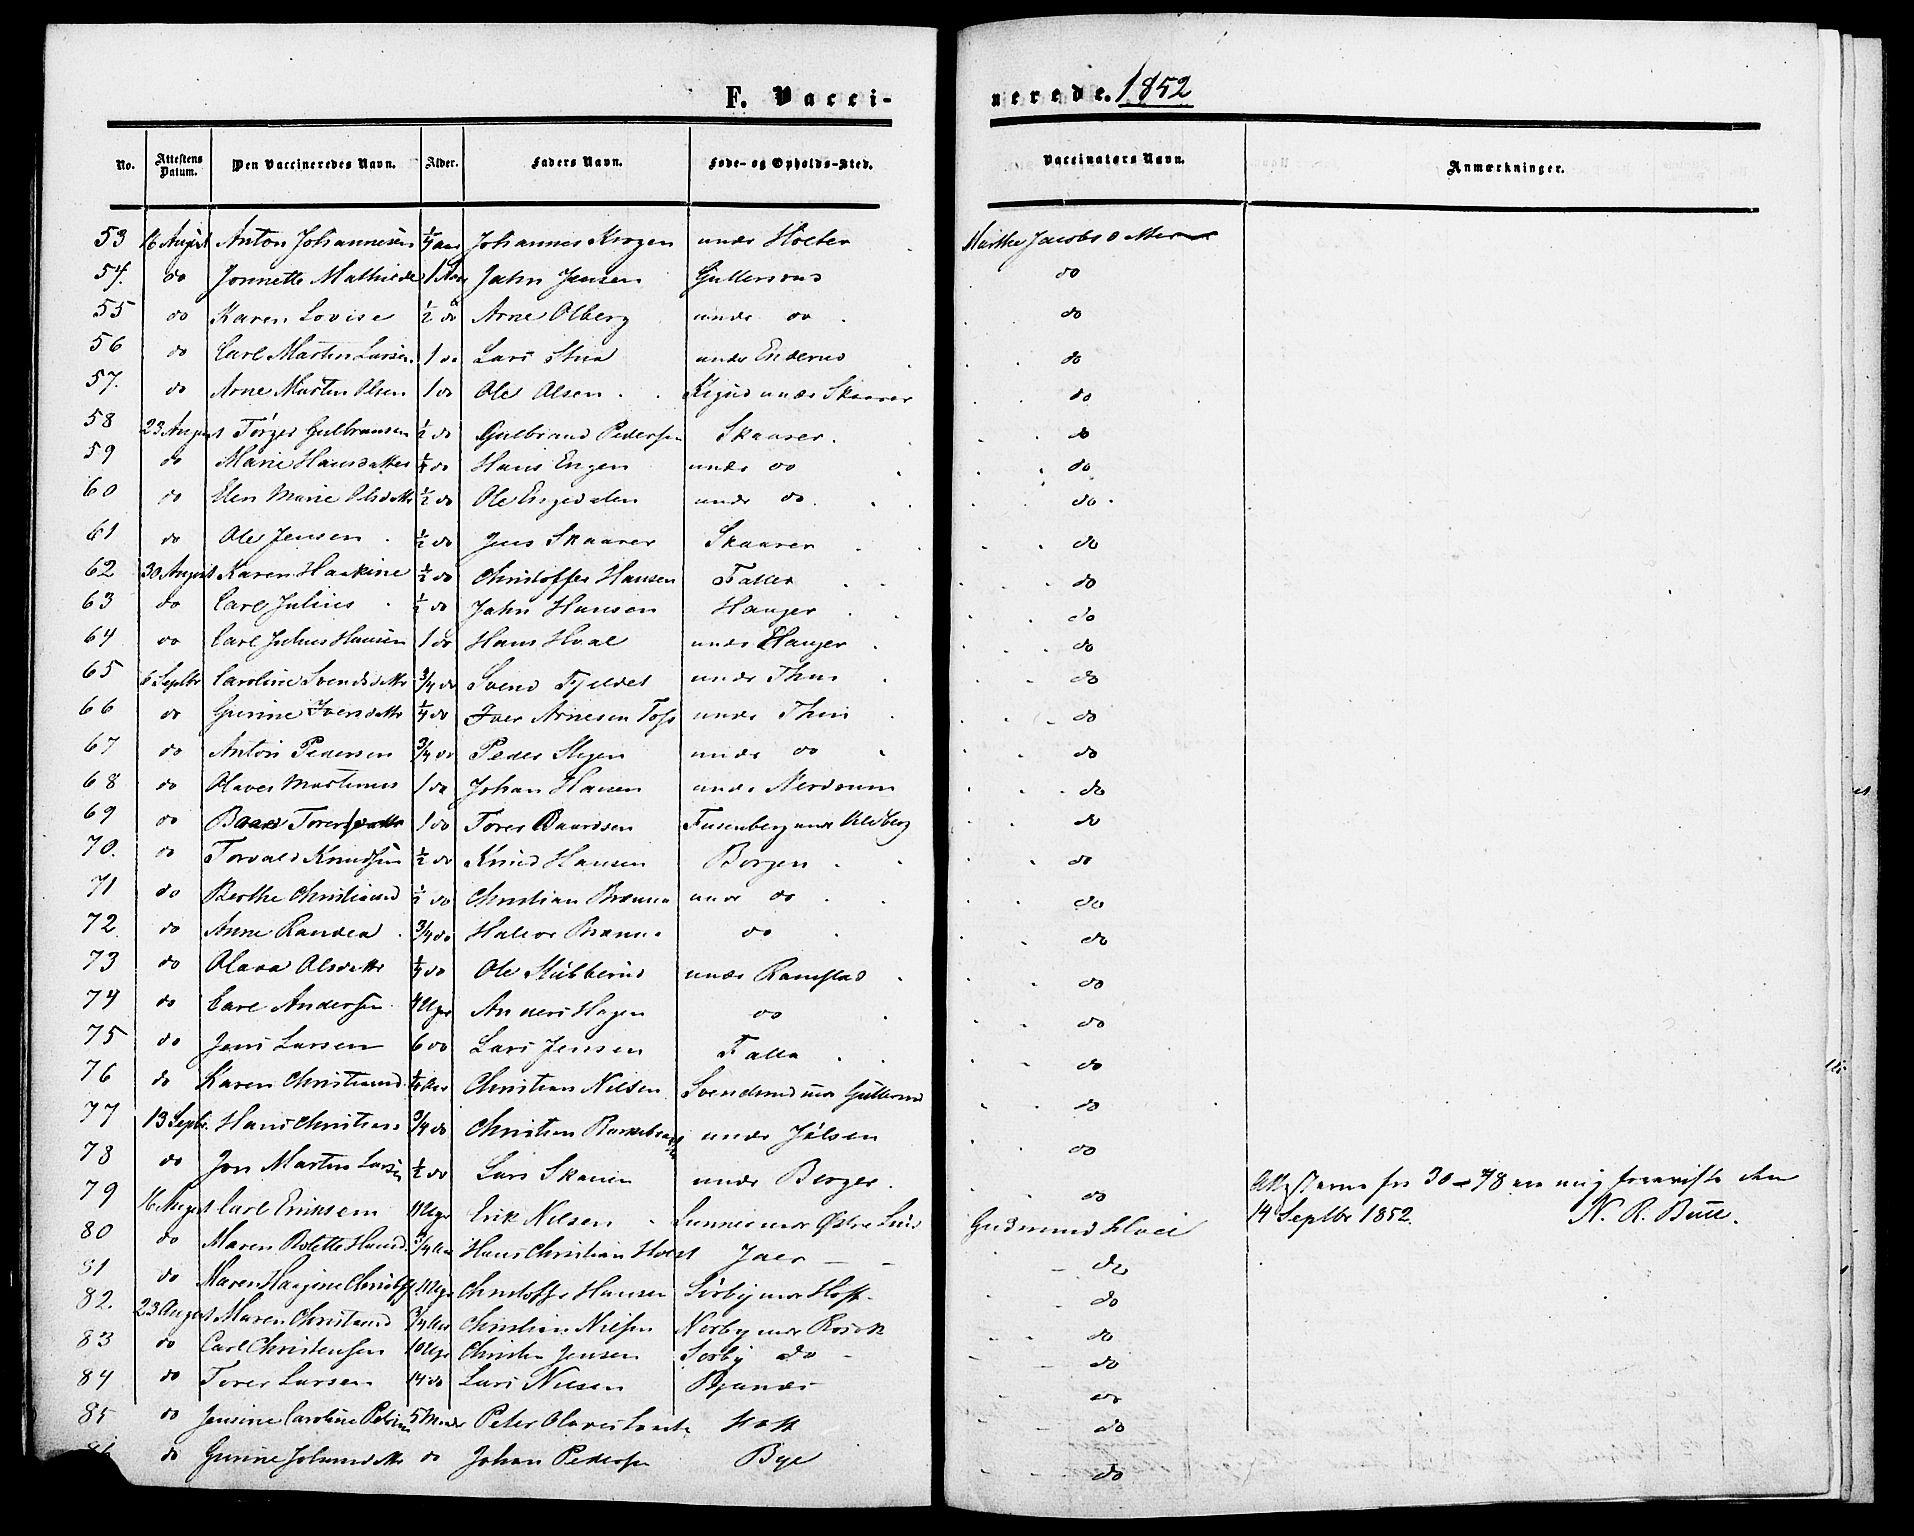 F. Vacci-nerede. 1852
No. Attestens Datum. Den Vaccineredes Navn. Alder. Faders Navn. Føde- og Opholds-Sted. Vaccinators Navn. Anmærkninger.
53 16 August Anton Johannesen 1/4 aar Johannes Krogen under Holter Marthe Jacobsdatter
54. do Jonnette Mathilde 1 Aar Jahn Jensen Gullerud do
55 do Karen Lovise 1/2 do Arne Olberg under do do
56 do Carl Martin Larsen 1 do Lars Stua under Enderud do
57. do Arne Martin Olsen 1 do Ole Olsen under Skaarer do
58 23 August Torger Gulbransen 1/2 do Gulbrand Pedersen Skaarer do
59 do Marie Hansdatter 1/4 do Hans Engen under do do
60 do Elen Marie Olsdatter 1/2 do Ole Engedalen under do do
61 do Ole Jensen 1/2 do Jens Skaarer Skaarer do
62 30 August Karen Haakine 1/2 do Christoffer Hansen Faller do
63 do Carl Julius 1/2 do Jahn Hansen Hauger do
64 do Carl Julius Hansen 1 do Hans Hval under Hauger do
65 6 Septbr Caroline Svendsdatter 3/4 do Svend Fjeldet under Thui do
66 do Gunine Iversdatter 1/4 do Iver Arnesen under Thui do
67 do Anton Pedersen 3/4 do Peder Stegen under do do
68 do Olaves Martinus 1 do Johan Hansen under Nerdrum do
69 do Baard 1 do Torer Baardsen under do
70. do Torvald Knudsen 1/2 do Knud Hansen Borgen do
71 do Berthe Christiansd 1/2 do Christian Brænna under do do
72 do Anne Randea 3/4 do Halvor Brænna do do
73 do Olava Olsdatter 1/4 do Ole Stubberud under Ramstad do
74 do Carl Andersen Uger Anders Hagen do do
75 do Jens Larsen 6 do Lars Jensen Falla do
76 do Karen Christiansd Christian Nilsen Svendsrud under Gullerud do
77 13 Septbr. Hans Christian 3/4 do Christian under Jølsen do
78 do Jon Martin Larsen 1/2 do Lars Skauen under Berger. do Attesterne fra 30-78 ere mig foreviste den
79 16 August Carl Eriksen 11 Uger Erik Nilsen under Østre Lund Gudmund 14 Septbr 1852. N. R. Bull.
80 do Maren Bolette Hansd. 3/4 Aar Hans Christian Jaer do
81 do Maren Haagine 11 Uger Christoffer Hansen Sørby under Hoff do
82. 23 August Maren Christiansd 3/4 Aar Christian Nilsen Norby under do
83 do Carl Christensen 10 Uger Christen Jensen Sørby do do
84 do Torer Larsen 14 do Lars Nilsen do
85 do Jensine Caroline 5 Peter Olaves Hoff do
86 do Gunine Johansdatter do Johan Pedersen Bye do